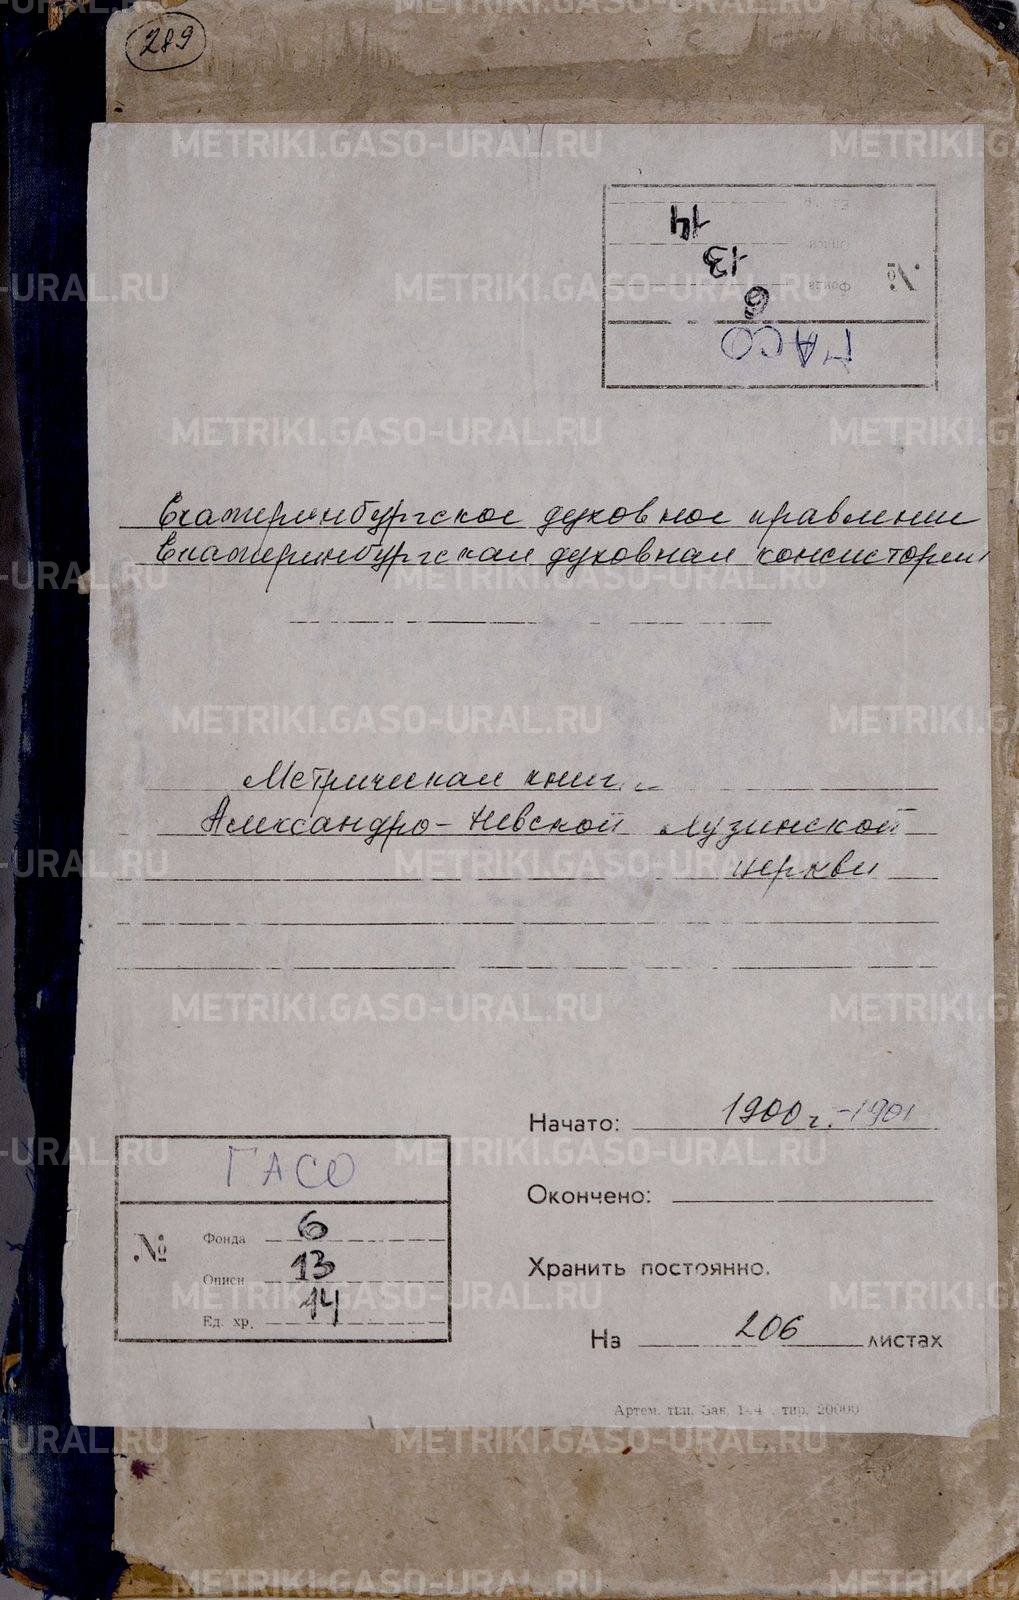 289
№
Фонда 6
Описи 13
Ед. хр. 14
ГАСО
Екатеринбургское духовное правление
Екатеринбургская духовная консистория
Метрическая книга
Александро-Невской Лузинской
церкви
Начато: 1900 г.-1901
Окончено:
Хранить постоянно.
На 206 листах
ГАСО
№
Фонда 6
Описи 13
Ед. хр. 14
Артем. тип. Зак. тир. 20000
METRIKI.GASO-URAL.RU